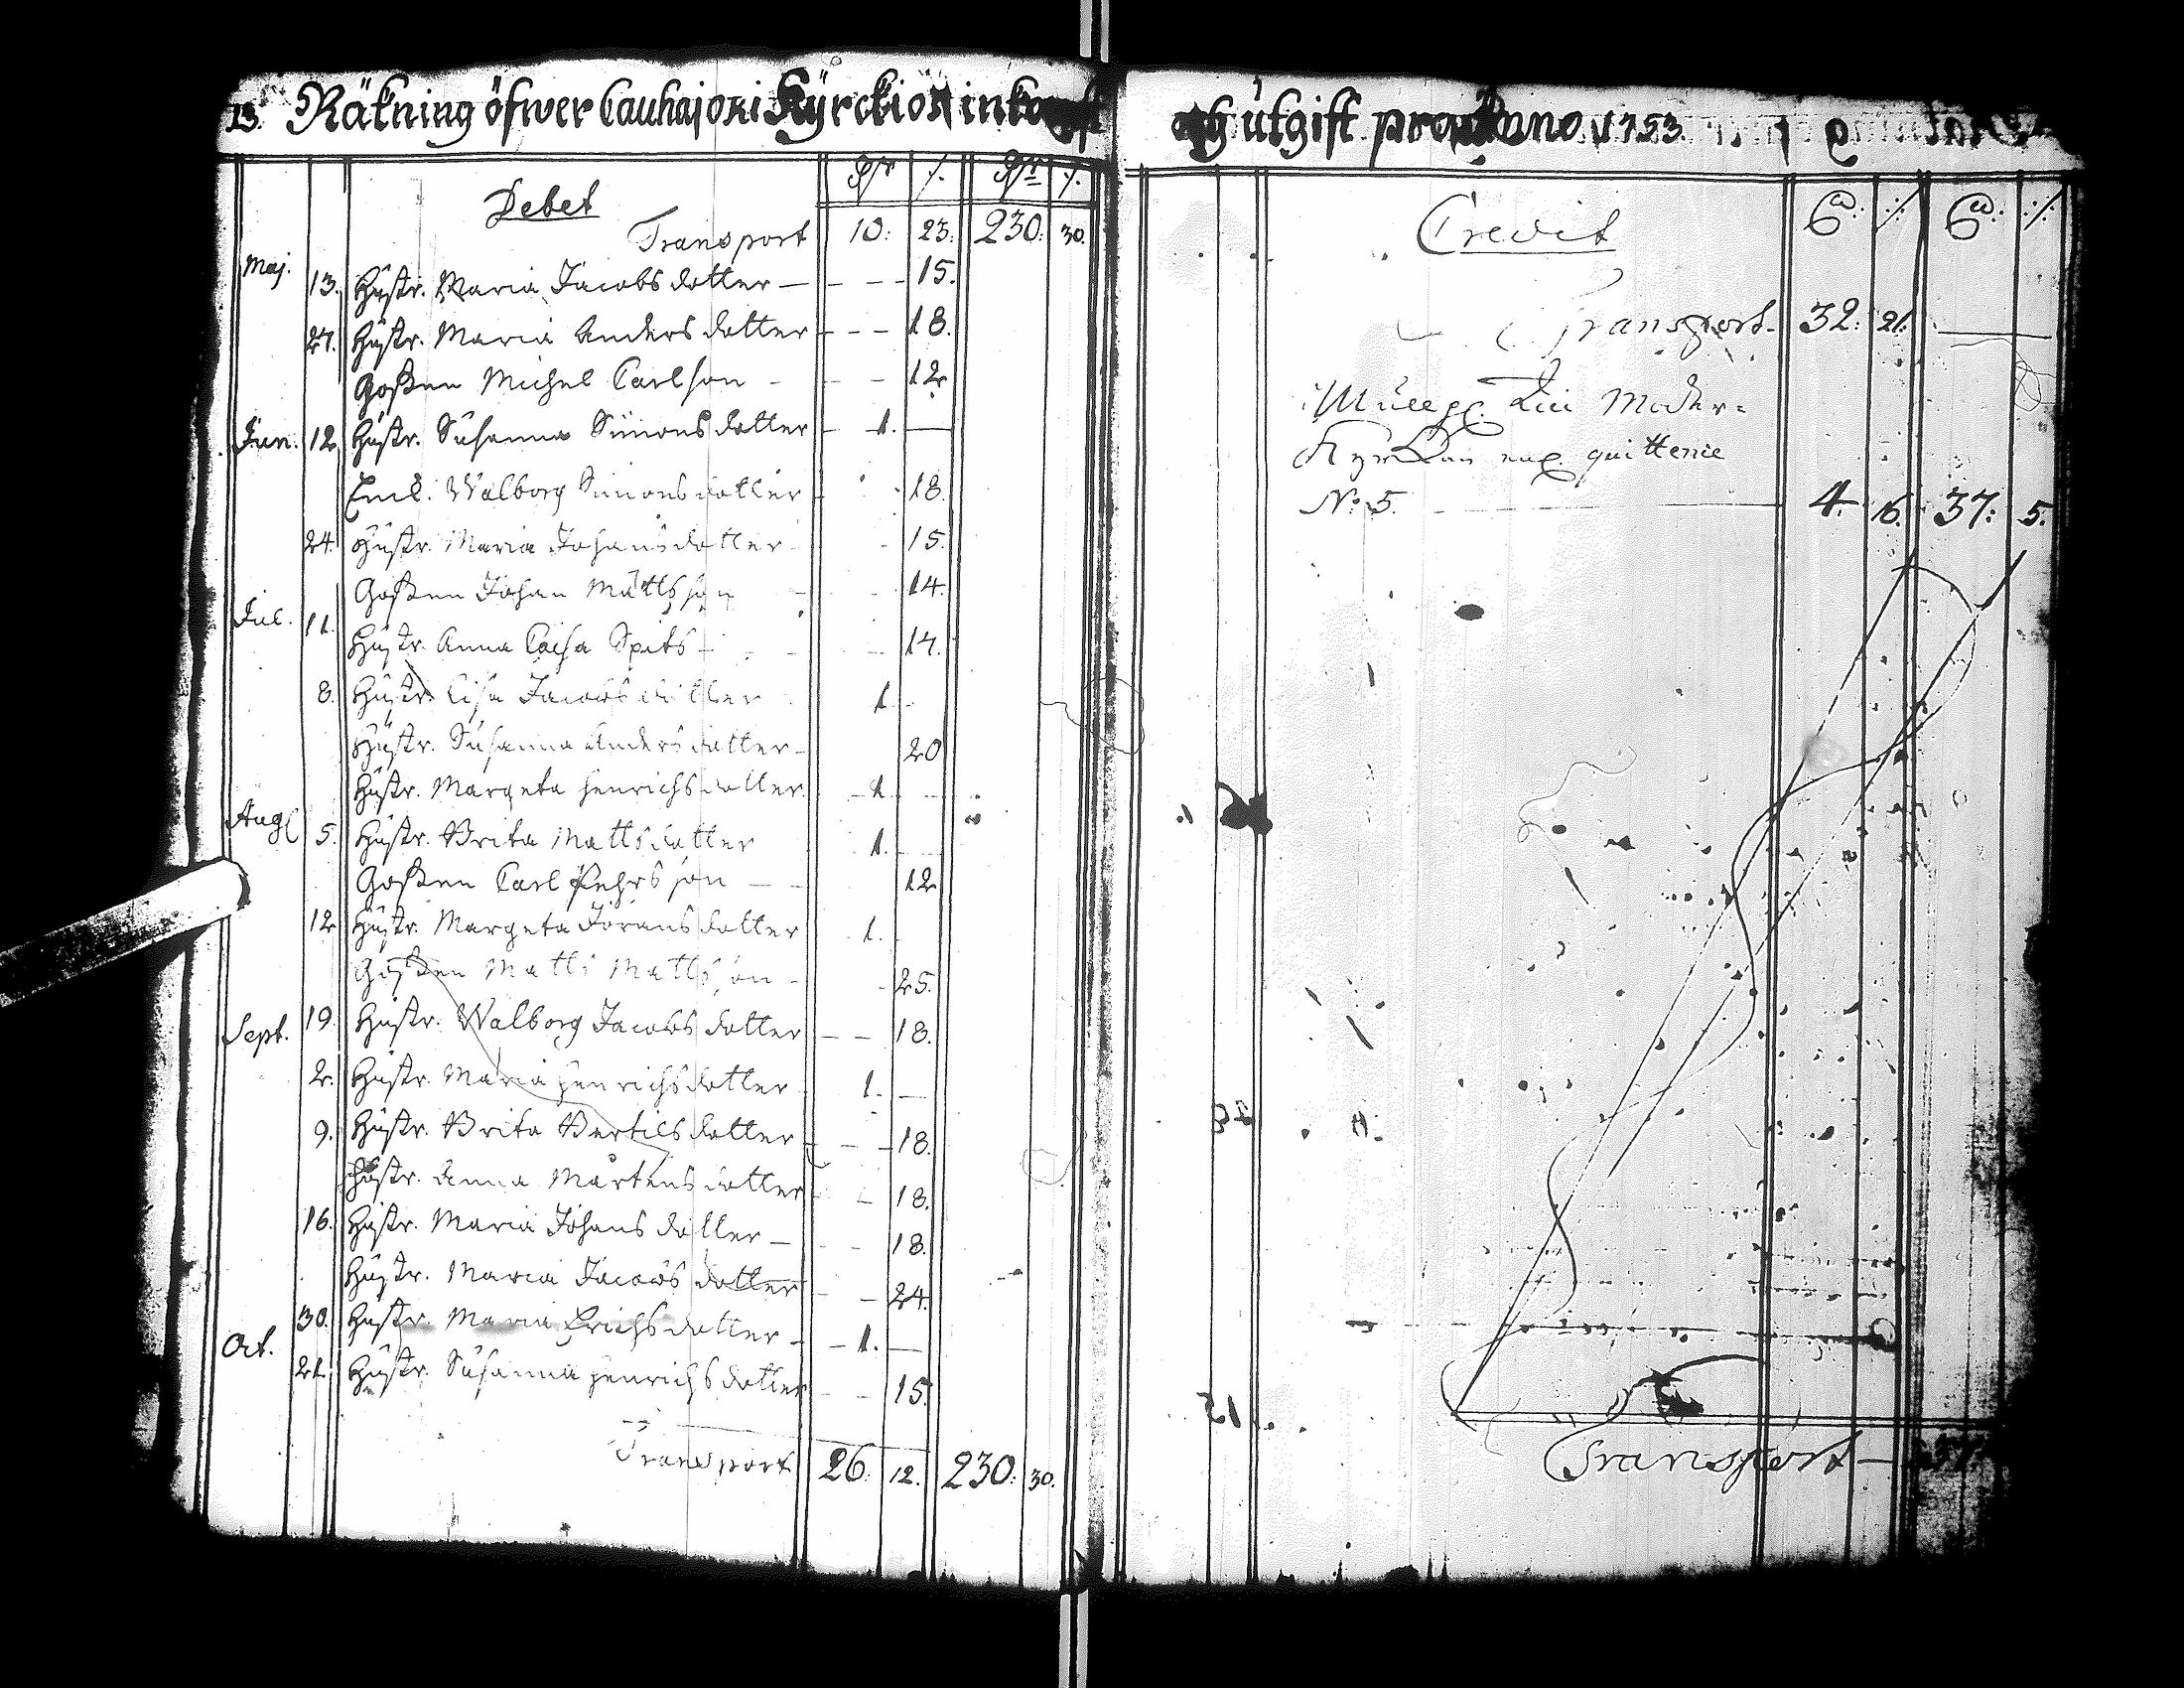 13. Räkning öfwer Cauhajoki Kyrckios inkomst
Debet
Transport 10: 23: 230: 30.
Maj. 13. Hustr. Maria Jacobs dotter 15.
27. Hustr. Maria Anders dotter 18.
Goßen Michel Carlson 12
Jun. 12 Hustr. Susanna Simons dotter 1.
Enk. Walborg Simons dotter 18.
24. Hustr. Maria Johans dotter 15.
Goßen Johan Matts son 14.
Jul. 11. Hustr. Anna Caisa Spits 14.
8. Hustr. Lisa Jacobs dotter 1
Hustr. Susanna Anders dotter 20
Hustr. Margeta Henrichs dotter 1.
Aug 5. Hustr. Brita Matts dotter 1.
Goßen Carl Pehrs son 12
12 Hustr. Margeta Jörans dotter 1.
Goßen Matts Matts son 25.
Sept. 19. Hustr. Walborg Jacobs dotter 18.
2. Hustr. Maria Henrichs dotter 1.
9. Hustr. Brita Bertils dotter 18.
Hustr. Anna Mårtens dotter 18.
16. Hustr. Maria Johans dotter 18.
Hustr. Maria Jacobs dotter 24.
30. Hustr. Maria Erichs dotter 1.
Oct. 21. Hustr. Susanna Henrichs dotter 15.
Transport 26. 12. 230: 30.
och utgift pro Anno 1753.
Credit
Transport 32: 21.
Moder=
Kyrkan quittence
No: 5. 4. 16. 37: 5.
Transport